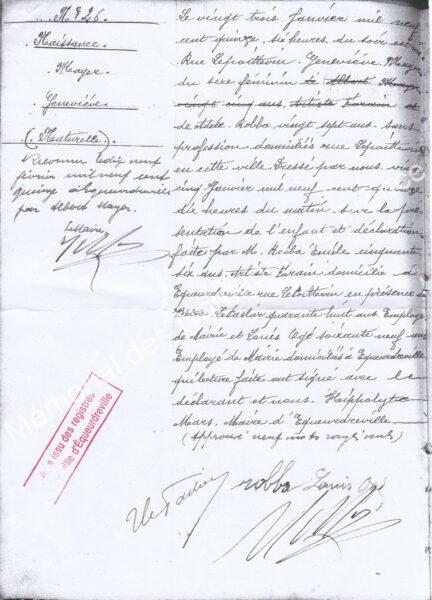 N° 26
Naissance
Mayer
Geneviève
(Naturelle)
Reconnue le dix neuf
février mil neuf cent
quinze à Equeurdreville
par Albert Mayer.
Le Maire,
Le vingt trois Janvier mil neuf
cent quinze six heures du soir est née
Rue Lepoittevin, Geneviève, Mayer
du sexe féminin de Albert Mayer
vingt cinq ans Artiste Forain et
de Adèle Robba vingt sept ans sans
profession domiciliés rue Lepoittevin
en cette ville. Dressé par nous, vingt
cinq Janvier mil neuf cent quinze
dix heures du matin sur la pré-
sentation de l'enfant et déclaration
faite par M. Robba Emile cinquante
six ans Artiste Forain domicilié à
Equeurdreville rue Lepoittevin en présence de
quarante huit ans Employé
de Mairie et Louis Ogé soixante neuf ans
Employé de Mairie domiciliés à Equeurdreville
qui lecture faite ont signé avec le
déclarant et nous, Hippolyte
Mars, Maire d'Equeurdreville.
(Approuvé neuf mots rayés nuls)
issu des registres
ville d'Equeurdreville
robba Louis Ogé